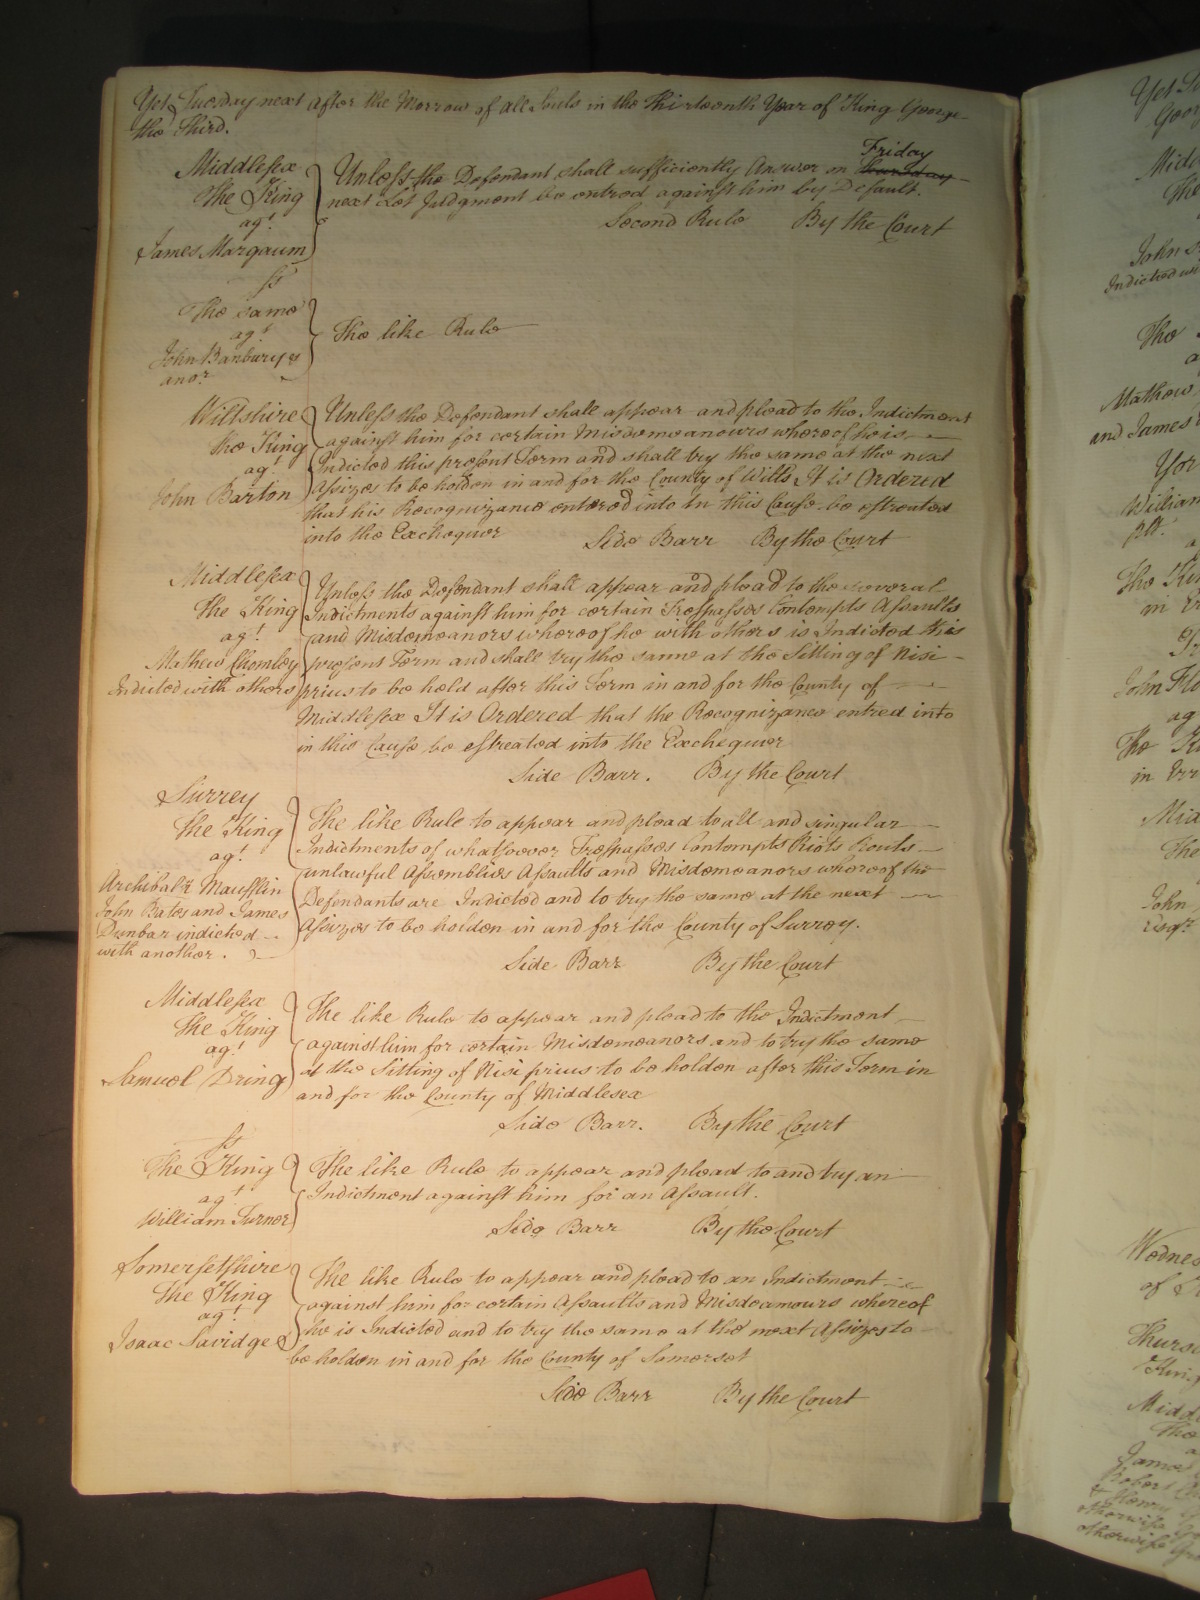 Yet Tuesday next after the Morrow of all Souls in the Thirteenth Year of King George
the Third.
Middlesex
The King
agt
James Margaum
Unless the Defendant shall sufficiently Answer on Friday
next Let Judgment be entred against him by Default.
Second Rule By the Court
ss
The same
agt
John Banbury &
anor
The like Rule
Wiltshire
The King
agt
John Barton
Unless the Defendant shall appear and plead to the Indictment
against him for certain Misdemeanours whereof he is
Indicted this present Term and shall try the same at the next
Assizes to be holden in and for the County of Wilts It is Ordered
that his Recognizance entered into in this Cause be estreated
into the Exchequer
Side Barr By the Court
Middlesex
The King
agt
Mathew Chomley
Indicted with others
Unless the Defendant shall appear and plead to the several
Indictments against him for certain Trespasses Contempts Assaults
and Misdemeanors whereof he with others is Indicted this
present Term and shall try the same at the Sitting of Nisi
prius to be held after this Term in and for the County of
Middlesex It is Ordered that the Recognizance entred into
in this Cause be estreated into the Exchequer
Side Barr. By the Court
Surrey
The King
agt
Archibald Mausslin
John Bates and James
Dunbar indicted
with another.
The like Rule to appear and plead to all and singular
Indictments of whatsoever Trespasses Contempts Riots Routs
unlawful Assemblies Assaults and Misdemeanors whereof the
Defendants are Indicted and to try the same at the next
Assizes to be holden in and for the County of Surrey.
Side Barr By the Court
Middlesex
The King
agt
Samuel Dring
The like Rule to appear and plead to the Indictment
against him for certain Misdemeanors and to try the same
at the Sitting of Nisi prius to be holden after this Term in
and for the County of Middlesex
Side Barr. By the Court
ss
The King
agt
William Turner
The like Rule to appear and plead to and try an
Indictment against him for an Assault.
Side Barr By the Court
Somersetshire
The King
agt
Isaac Savidge
The like Rule to appear and plead to an Indictment
against him for certain Assaults and Misdeamours whereof
he is Indicted and to try the same at the next Assizes to
be holden in and for the County of Somerset
Side Barr By the Court
Yet
The
John
Indicted
The
Mathew
and James
Yor
plt.
The
in
John Flo
agt
The
in Err
The
John
Esqr
of
The
Robert
& Henry
otherwise
otherwise